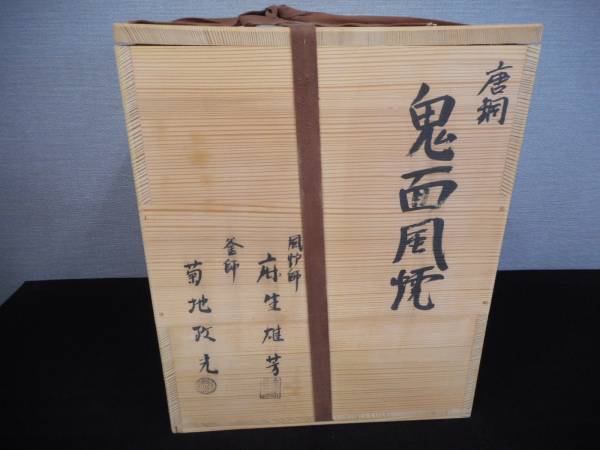 唐銅
鬼面風炉
風炉師
麻生雄芳
釜師
菊地政光